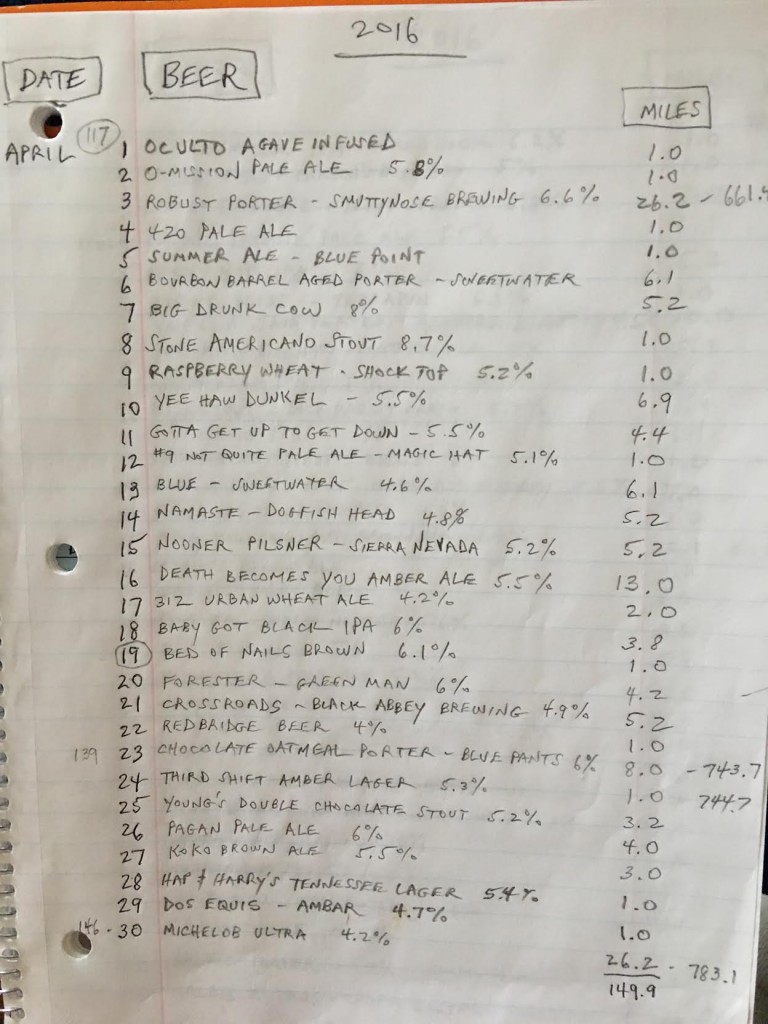 2016
DATE BEER MILES
APRIL 117 1 OCULTO AGAVE INFUSED 1.0
2 O-MISSION PALE ALE 5.8% 1.0
3 ROBUST PORTER - SMUTTYNOSE BREWING 6.6% 26.2 - 661.4
4 420 PALE ALE 1.0
5 SUMMER ALE - BLUE POINT 1.0
6 BOURBON BARREL AGED PORTER - SWEETWATER 6.1
7 BIG DRUNK COW 8% 5.2
8 STONE AMERICANO STOUT 8.7% 1.0
9 RASPBERRY WHEAT - SHOCK TOP 5.2% 1.0
10 YEE HAW DUNKEL - 5.5% 6.9
11 GOTTA GET UP TO GET DOWN - 5.5% 4.4
12 #9 NOT QUITE PALE ALE - MAGIC HAT 5.1% 1.0
13 BLUE - SWEETWATER 4.6% 6.1
14 NAMASTE - DOGFISH HEAD 4.8% 5.2
15 NOONER PILSNER - SIERRA NEVADA 5.2% 5.2
16 DEATH BECOMES YOU AMBER ALE 5.5% 13.0
17 312 URBAN WHEAT ALE 4.2% 2.0
18 BABY GOT BLACK IPA 6% 3.8
19 BED OF NAILS BROWN 6.1% 1.0
20 FORESTER - GREEN MAN 6% 4.2
21 CROSSROADS - BLACK ABBEY BREWING 4.9% 5.2
22 REDBRIDGE BEER 4% 1.0
139 23 CHOCOLATE OATMEAL PORTER - BLUE PANTS 6% 8.0 - 743.7
24 THIRD SHIFT AMBER LAGER 5.3% 1.0 744.7
25 YOUNG'S DOUBLE CHOCOLATE STOUT 5.2% 3.2
26 PAGAN PALE ALE 6% 4.0
27 KOKO BROWN ALE 5.5% 3.0
28 HAP & HARRY'S TENNESSEE LAGER 5.4% 1.0
29 DOS EQUIS - AMBAR 4.7% 1.0
146 - 30 MICHELOB ULTRA 4.2% 26.2 - 783.1
149.9